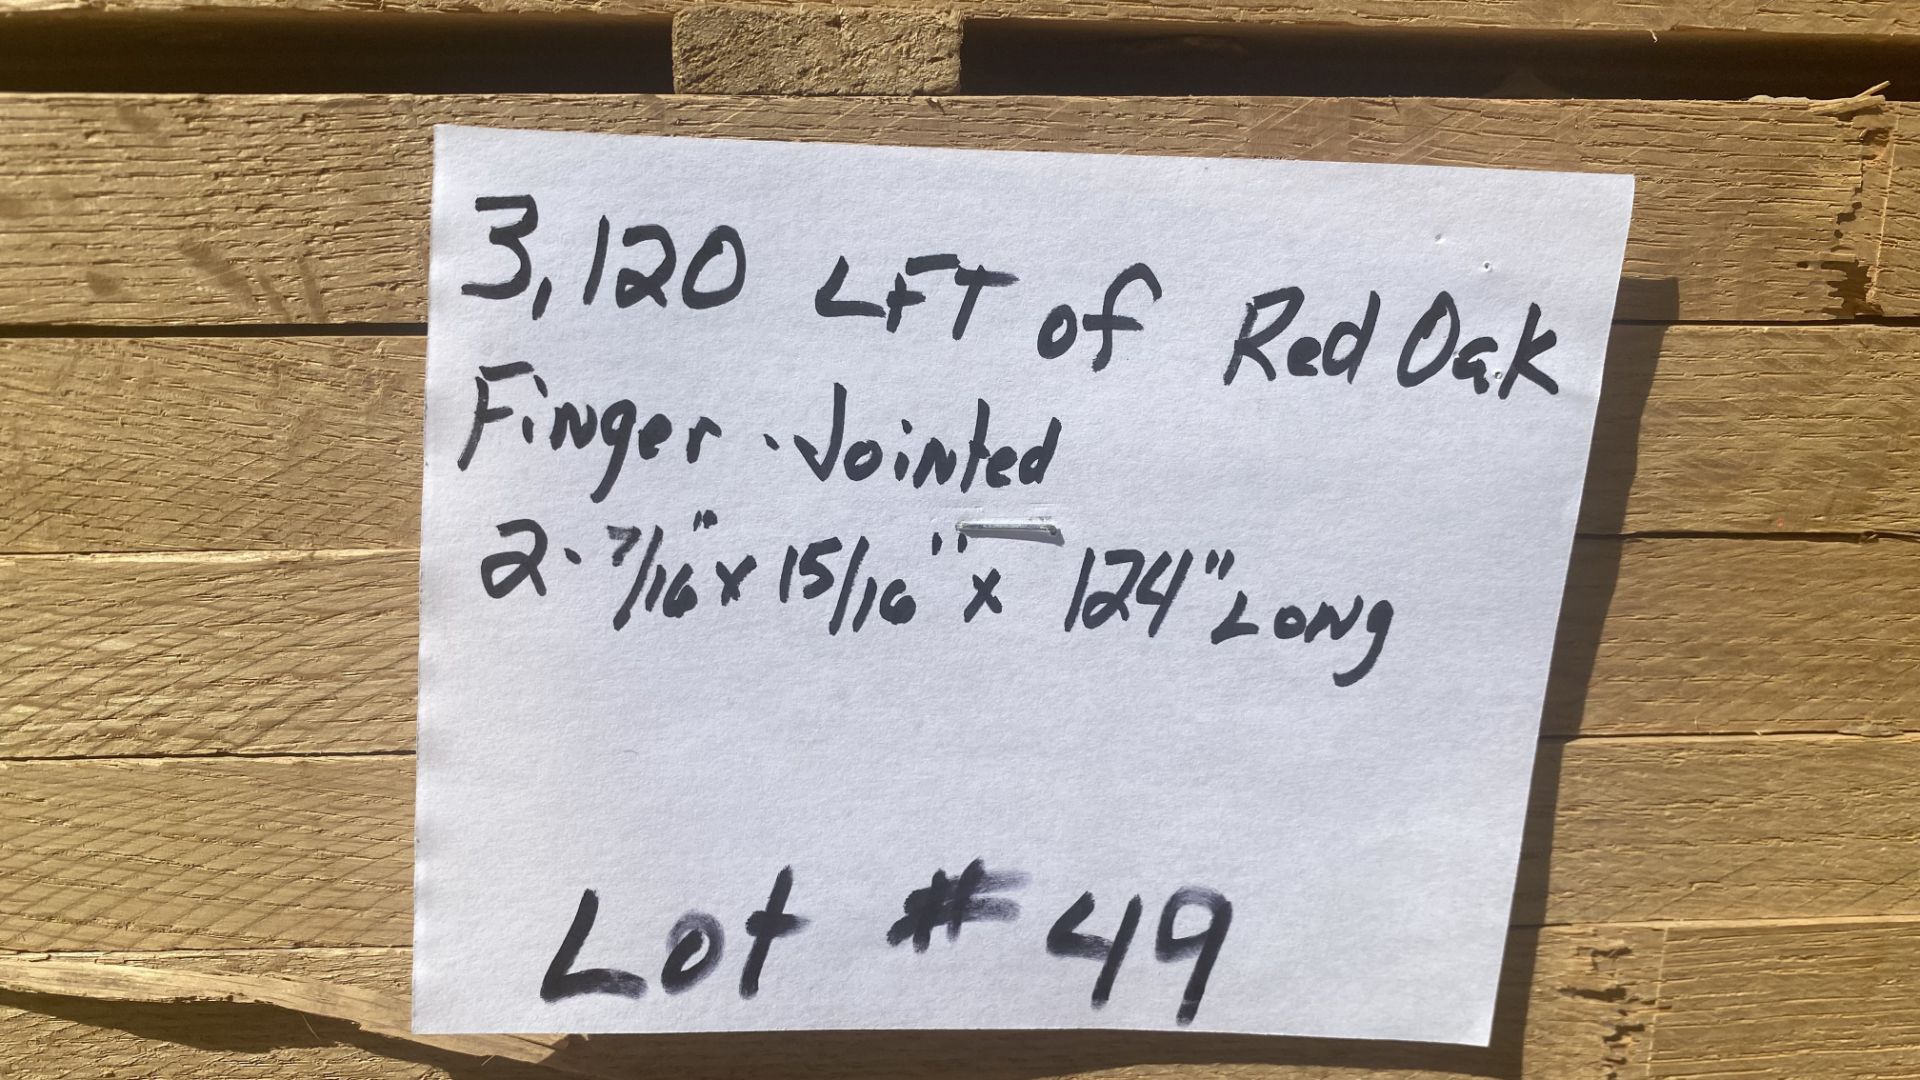 3,120 LFT of Red Oak
Finger-Jointed
2-7/16" x 15/16" x 124" Long
Lot #49